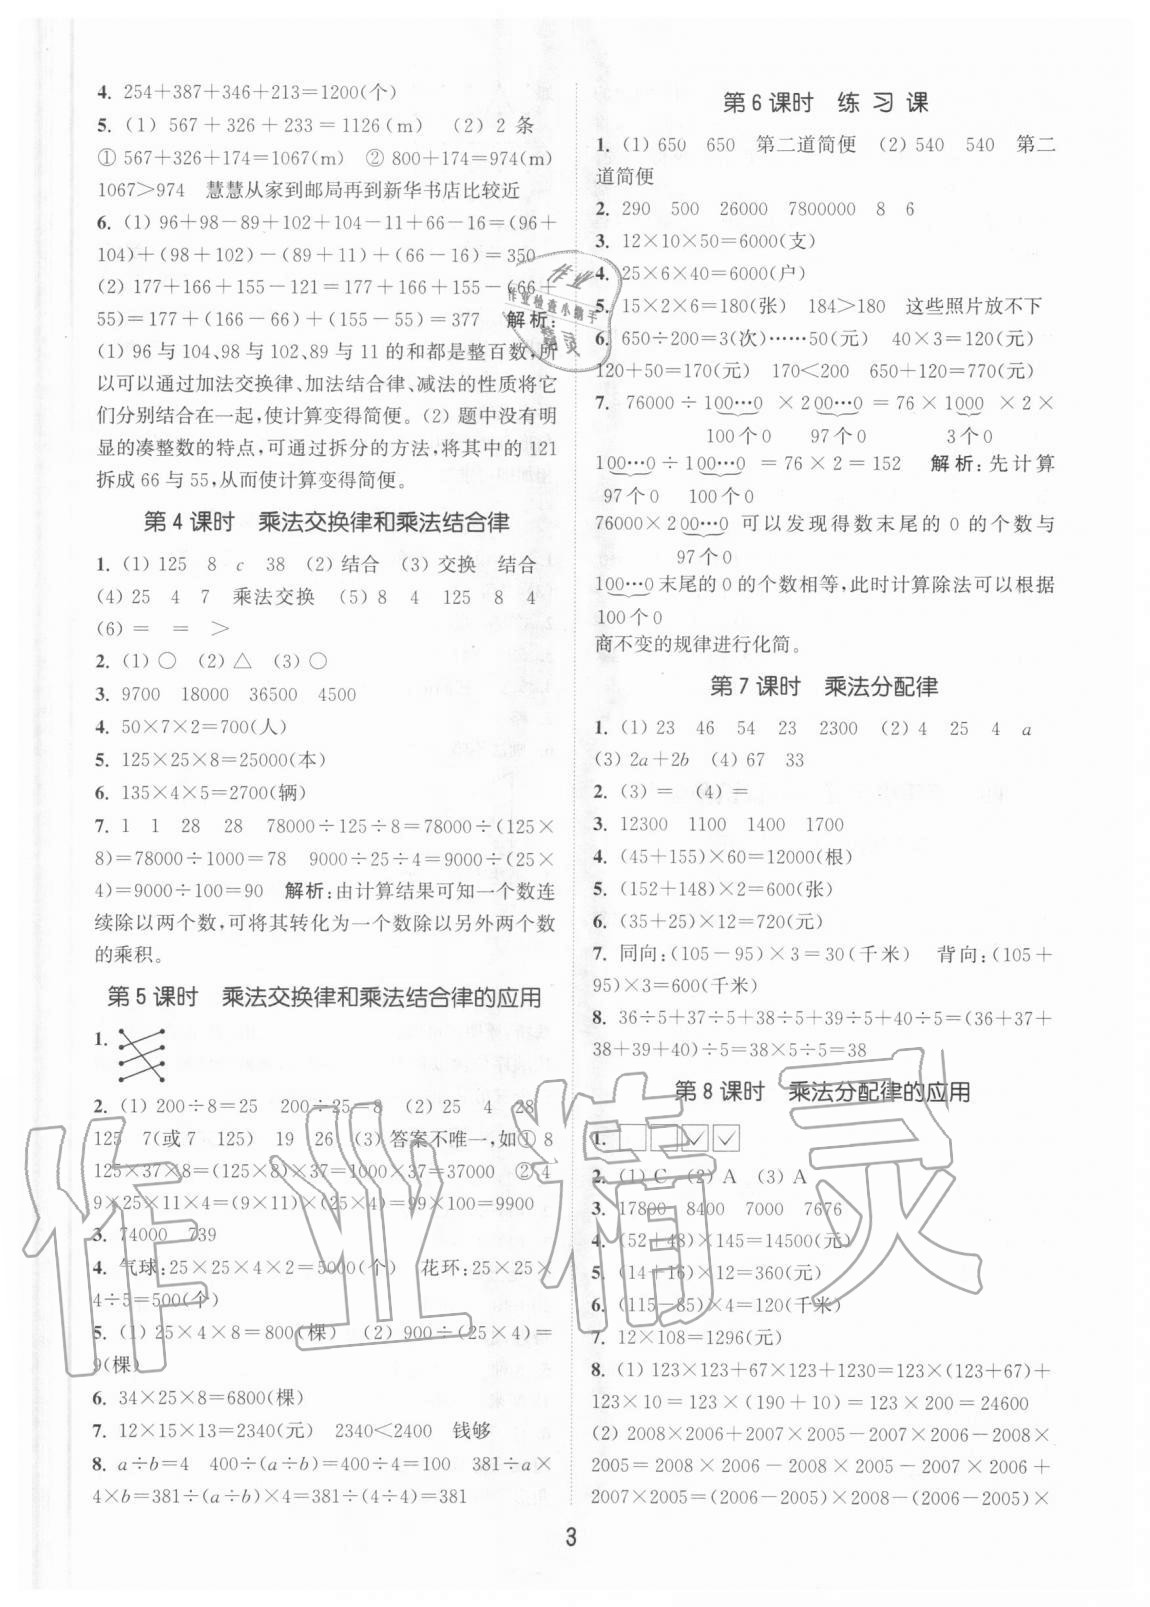 4. 254+387+346+213=1200(个)
5. (1) 567+326+233=1126(m) (2) 2 条
① 567+326+174=1067(m) ② 800+174=974(m)
1067>974 慧慧从家到邮局再到新华书店比较近
6. (1) 96+98-89+102+104-11+66-16=(96+
104)+(98+102)-(89+11)+(66-16)=350
(2) 177+166+155-121=177+166+155-(66+
55)=177+(166-66)+(155-55)=377 解析:
(1) 96 与 104、98 与 102、89 与 11 的和都是整百数,所
以可以通过加法交换律、加法结合律、减法的性质将它
们分别结合在一起,使计算变得简便。(2) 题中没有明
显的凑整数的特点,可通过拆分的方法,将其中的 121
拆成 66 与 55,从而使计算变得简便。
第 4 课时 乘法交换律和乘法结合律
1. (1) 125 8 c 38 (2) 结合 (3) 交换 结合
(4) 25 4 7 乘法交换 (5) 8 4 125 8 4
(6) = = >
2. (1) ○ (2) △ (3) ○
3. 9700 18000 36500 4500
4. 50×7×2=700(人)
5. 125×25×8=25000(本)
6. 135×4×5=2700(辆)
7. 1 1 28 28 78000÷125÷8=78000÷(125×
8)=78000÷1000=78 9000÷25÷4=9000÷(25×
4)=9000÷100=90 解析:由计算结果可知一个数连
续除以两个数,可将其转化为一个数除以另外两个数
的乘积。
第 5 课时 乘法交换律和乘法结合律的应用
1.
2. (1) 200÷8=25 200÷25=8 (2) 25 4 28
125 7(或 7 125) 19 26 (3) 答案不唯一,如① 8
125×37×8=(125×8)×37=1000×37=37000 ② 4
9×25×11×4=(9×11)×(25×4)=99×100=9900
3. 74000 739
4. 气球:25×25×4×2=5000(个) 花环:25×25×
4÷5=500(个)
5. (1) 25×4×8=800(棵) (2) 900÷(25×4)=
9(棵)
6. 34×25×8=6800(棵)
7. 12×15×13=2340(元) 2340<2400 钱够
8. a÷b=4 400÷(a÷b)=400÷4=100 381÷a×
4×b=381÷(a÷b)×4=381÷(4÷4)=381
第 6 课时 练 习 课
1. (1) 650 650 第二道简便 (2) 540 540 第二
道简便
2. 290 500 26000 7800000 8 6
3. 12×10×50=6000(支)
4. 25×6×40=6000(户)
5. 15×2×6=180(张) 184>180 这些照片放不下
6. 650÷200=3(次)……50(元) 40×3=120(元)
120+50=170(元) 170<200 650+120=770(元)
7. 76000÷100…0×200…0=76×1000×2×
100个0 97个0 3个0
100…0÷100…0=76×2=152 解析:先计算
97个0 100个0
76000×200…0 可以发现得数末尾的 0 的个数与
97个0
100…0末尾的 0 的个数相等,此时计算除法可以根据
100个0
商不变的规律进行化简。
第 7 课时 乘法分配律
1. (1) 23 46 54 23 2300 (2) 4 25 4 a
(3) 2a+2b (4) 67 33
2. (3) = (4) =
3. 12300 1100 1400 1700
4. (45+155)×60=12000(根)
5. (152+148)×2=600(张)
6. (35+25)×12=720(元)
7. 同向:(105-95)×3=30(千米) 背向:(105+
95)×3=600(千米)
8. 36÷5+37÷5+38÷5+39÷5+40÷5=(36+37+
38+39+40)÷5=38×5÷5=38
第 8 课时 乘法分配律的应用
1. □□☑☑
2. (1) C (2) A (3) A
3. 17800 8400 7000 7676
4. (52+48)×145=14500(元)
5. (14+16)×12=360(元)
6. (115-85)×4=120(千米)
7. 12×108=1296(元)
8. (1) 123×123+67×123+1230=123×(123+67)+
123×10=123×(190+10)=123×200=24600
(2) 2008×2006+2007×2005-2007×2006-2008×
2005=2008×2006-2008×2005-2007×2006+
2007×2005=(2006-2005)×2008-(2006-2005)×
3
作业
作业检查小助手
精灵
作业精灵